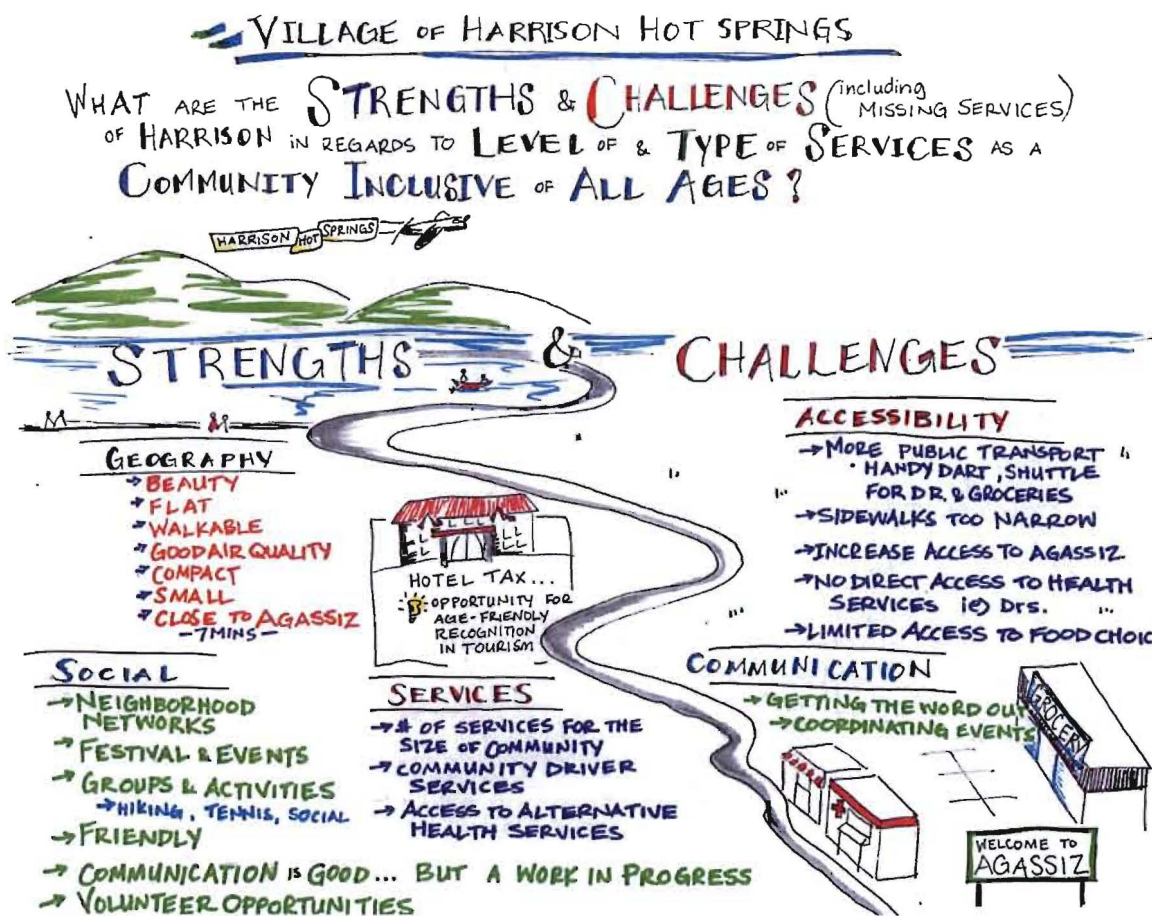 VILLAGE OF HARRISON HOT SPRINGS
WHAT ARE THE STRENGTHS & CHALLENGES (including MISSING SERVICES)
OF HARRISON IN REGARDS TO LEVEL OF & TYPE OF SERVICES AS A
COMMUNITY INCLUSIVE OF ALL AGES?
HARRISON HOT SPRINGS
STRENGTHS & CHALLENGES
GEOGRAPHY
→ BEAUTY
→ FLAT
→ WALKABLE
→ GOOD AIR QUALITY
→ COMPACT
→ SMALL
→ CLOSE TO AGASSIZ
- 7 MINS -
SOCIAL
→ NEIGHBORHOOD
NETWORKS
→ FESTIVAL & EVENTS
→ GROUPS & ACTIVITIES
→ HIKING, TENNIS, SOCIAL
→ FRIENDLY
→ COMMUNICATION IS GOOD... BUT A WORK IN PROGRESS
→ VOLUNTEER OPPORTUNITIES
HOTEL TAX...
OPPORTUNITY FOR
AGE-FRIENDLY
RECOGNITION
IN TOURISM
SERVICES
→ # OF SERVICES FOR THE
SIZE OF COMMUNITY
→ COMMUNITY DRIVER
SERVICES
→ ACCESS TO ALTERNATIVE
HEALTH SERVICES
ACCESSIBILITY
→ MORE PUBLIC TRANSPORT
• HANDY DART, SHUTTLE
FOR DR. & GROCERIES
→ SIDEWALKS TOO NARROW
→ INCREASE ACCESS TO AGASSIZ
→ NO DIRECT ACCESS TO HEALTH
SERVICES ie) Drs.
→ LIMITED ACCESS TO FOOD CHOIC
COMMUNICATION
→ GETTING THE WORD OUT
→ COORDINATING EVENTS
GROCERY
WELCOME TO
AGASSIZ